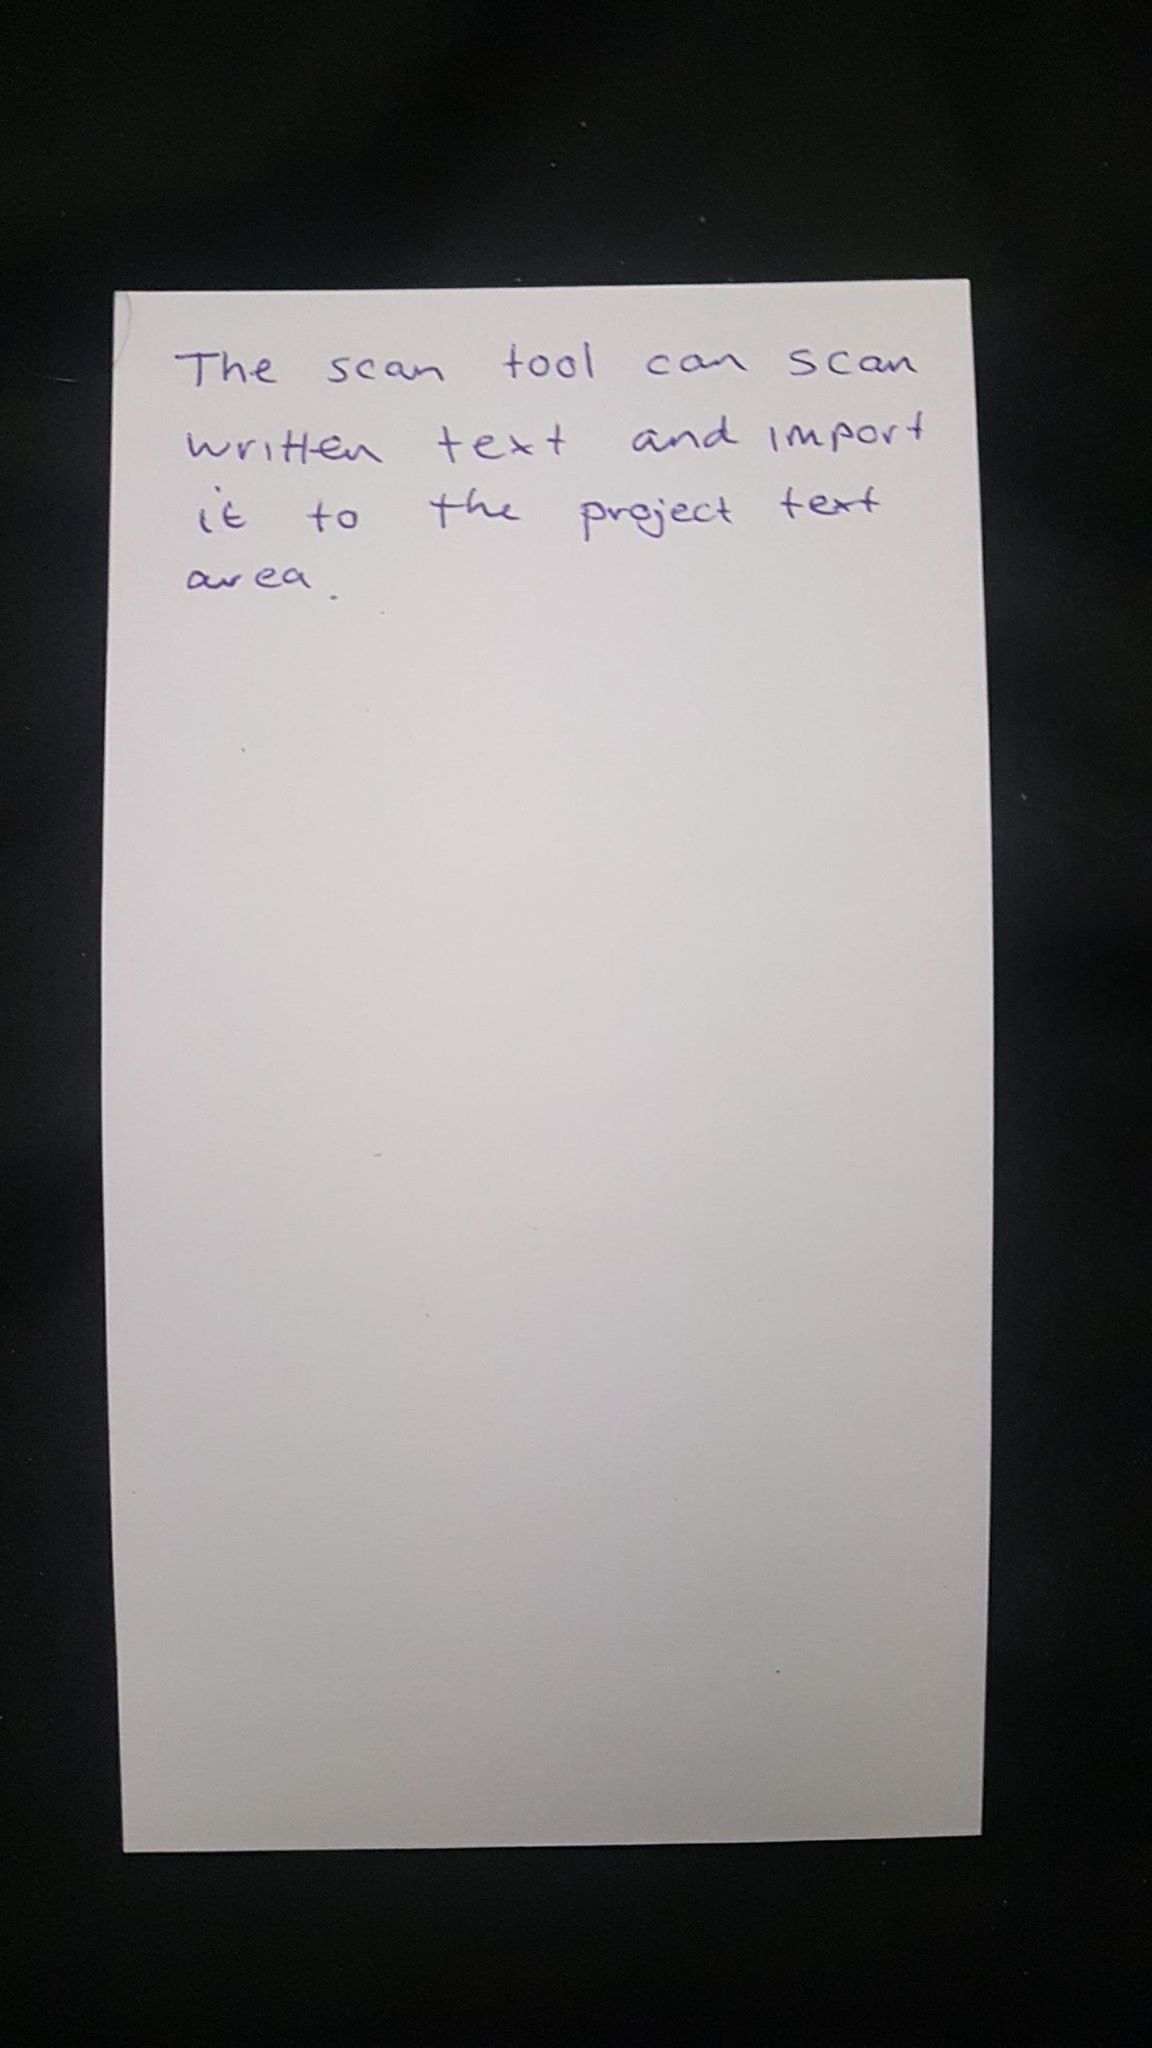 The scan tool can scan
written text and import
it to the project text
area.